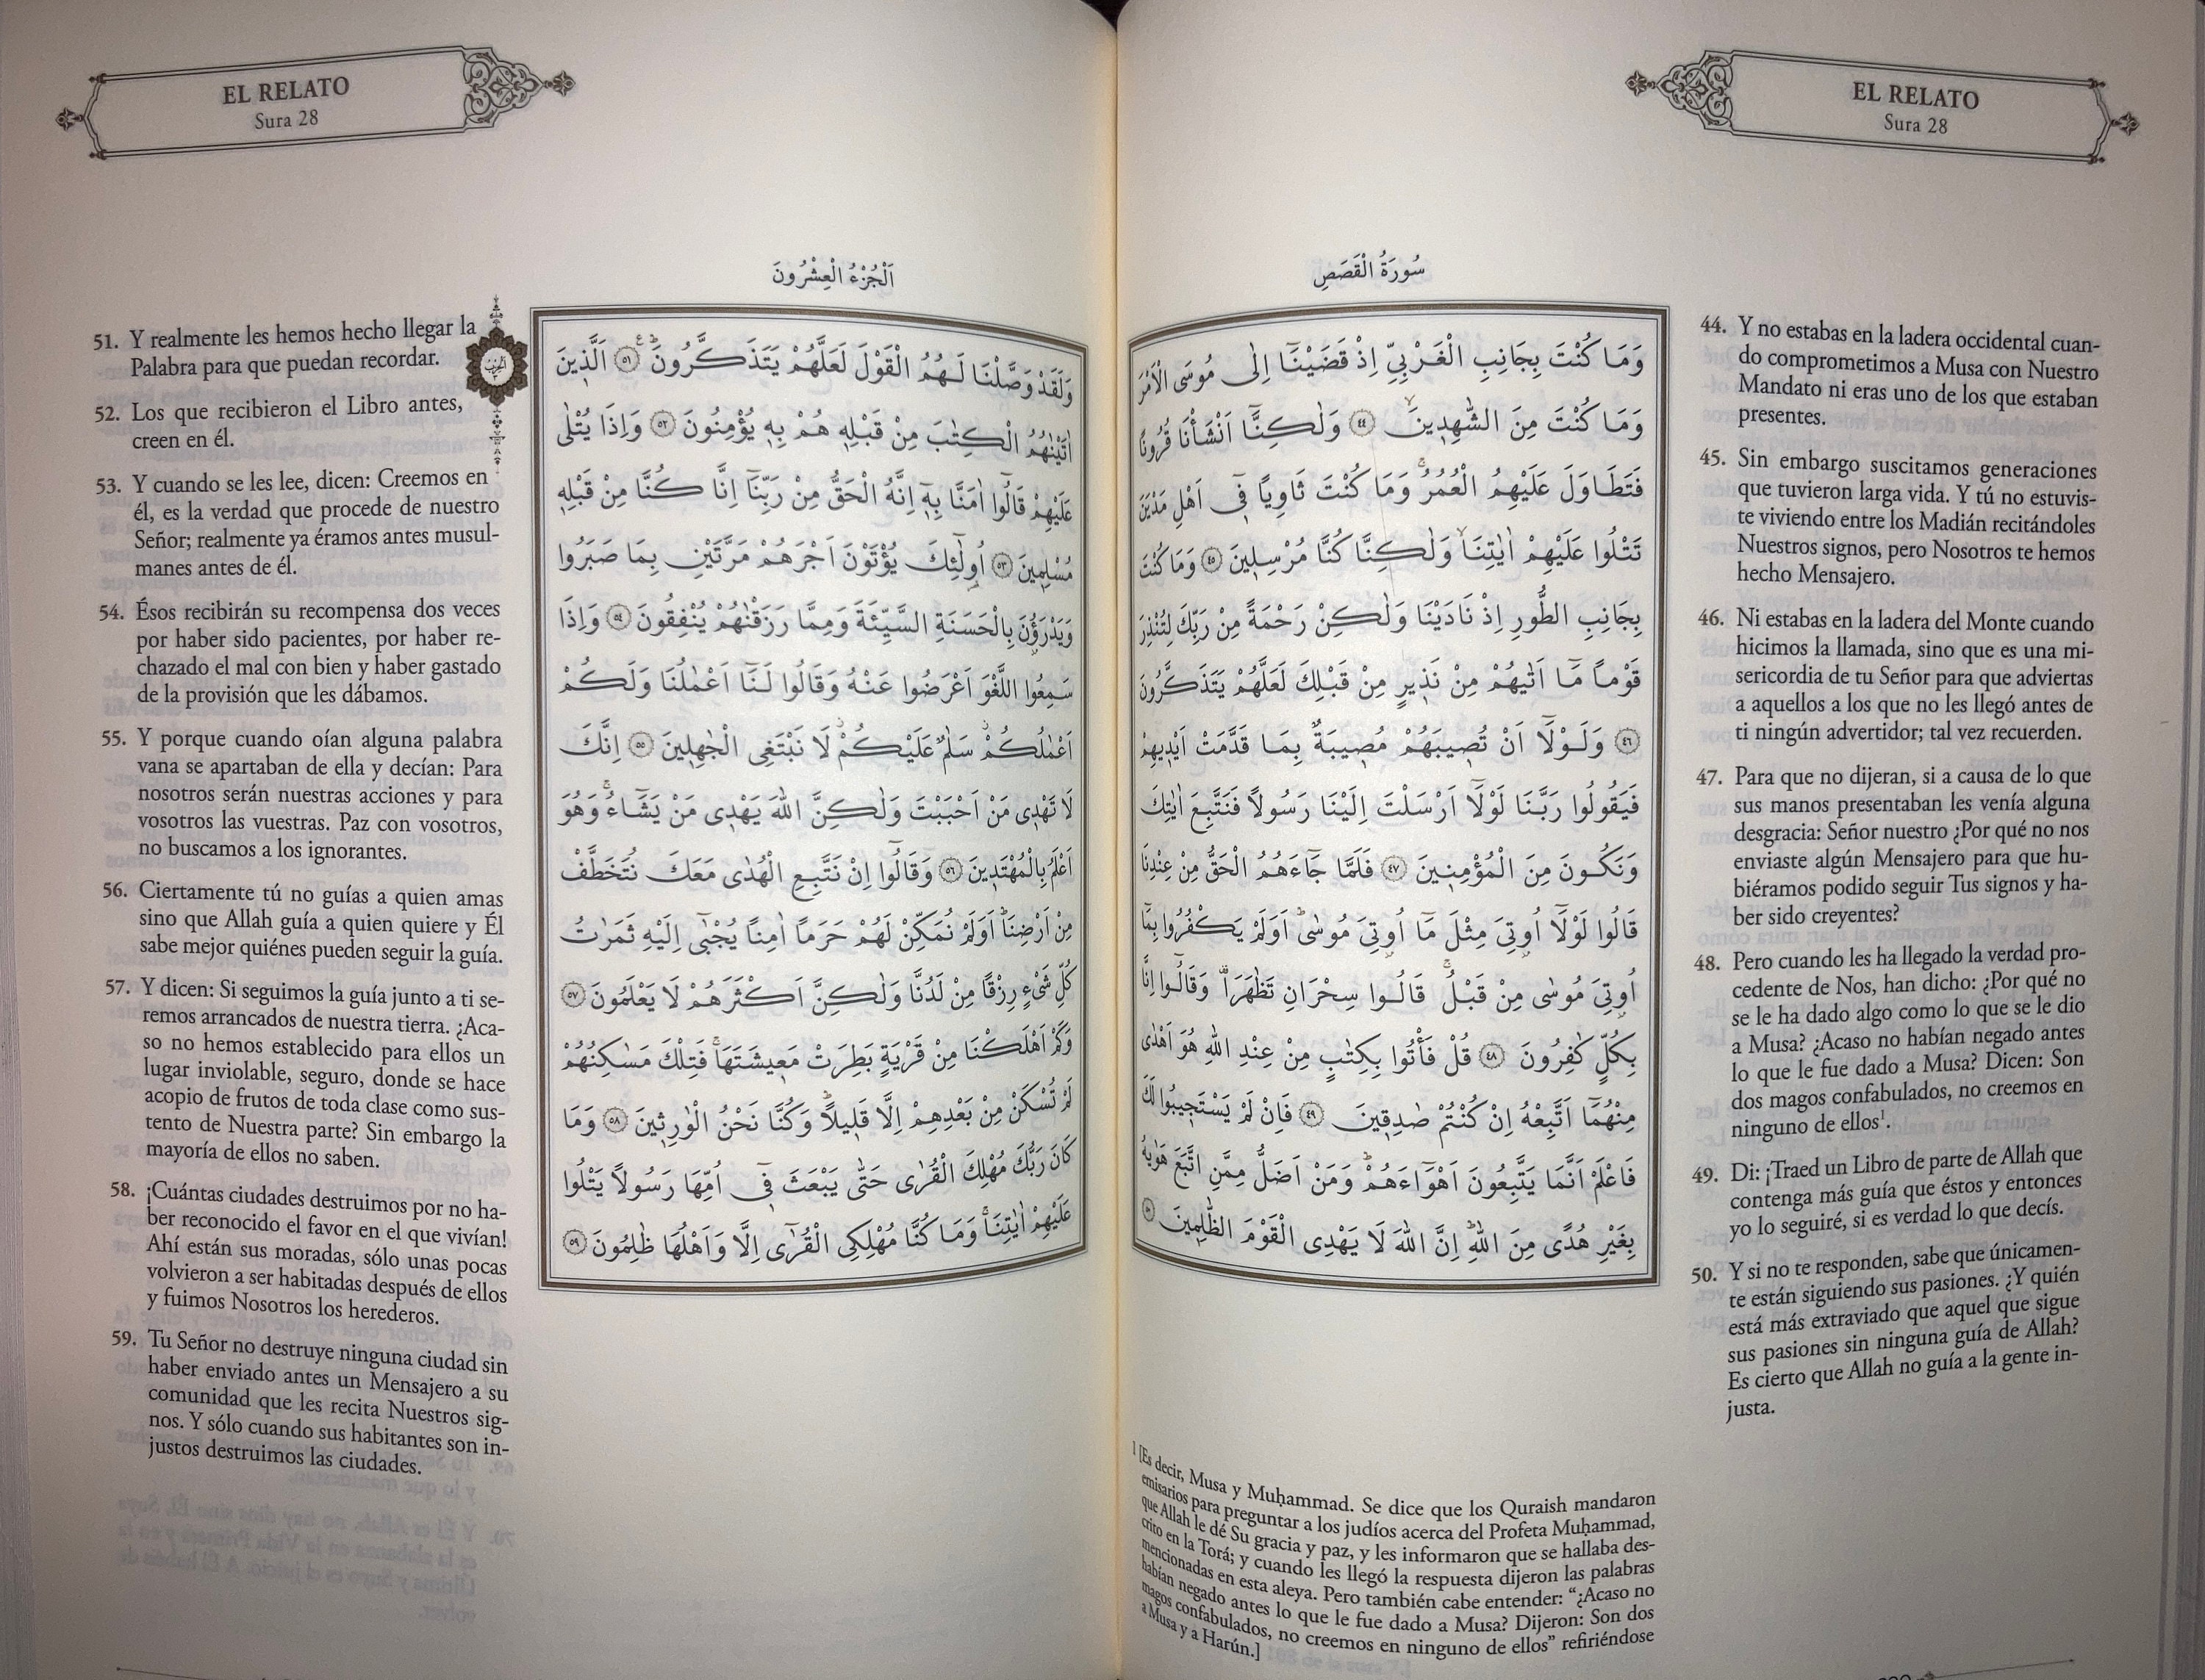 EL RELATO
Sura 28
سُورَةُ الْقَصَصِ
وَمَا كُنْتَ بِجَانِبِ الْغَرْبِيِّ اِذْ قَضَيْنَٓا اِلٰى مُوسَى الْاَمْرَ
وَمَا كُنْتَ مِنَ الشَّٰهِدٖينَۙ ﴿٤٤﴾ وَلٰكِنَّٓا اَنْشَأْنَا قُرُونًا
فَتَطَاوَلَ عَلَيْهِمُ الْعُمُرُۚ وَمَا كُنْتَ ثَاوِيًا فٖٓي اَهْلِ مَدْيَنَ
تَتْلُوا عَلَيْهِمْ اٰيَاتِنَاۙ وَلٰكِنَّا كُنَّا مُرْسِلٖينَ ﴿٤٥﴾ وَمَا كُنْتَ
بِجَانِبِ الطُّورِ اِذْ نَادَيْنَا وَلٰكِنْ رَحْمَةً مِنْ رَبِّكَ لِتُنْذِرَ
قَوْمًا مَٓا اَتٰيهُمْ مِنْ نَذٖيرٍ مِنْ قَبْلِكَ لَعَلَّهُمْ يَتَذَكَّرُونَ
﴿٤٦﴾ وَلَوْلَٓا اَنْ تُصٖيبَهُمْ مُصٖيبَةٌ بِمَا قَدَّمَتْ اَيْدٖيهِمْ
فَيَقُولُوا رَبَّنَا لَوْلَٓا اَرْسَلْتَ اِلَيْنَا رَسُولًا فَنَتَّبِعَ اٰيَاتِكَ
وَنَكُونَ مِنَ الْمُؤْمِنٖينَ ﴿٤٧﴾ فَلَمَّا جَٓاءَهُمُ الْحَقُّ مِنْ عِنْدِنَا
قَالُوا لَوْلَٓا اُو۫تِيَ مِثْلَ مَٓا اُو۫تِيَ مُوسٰىؕ اَوَلَمْ يَكْفُرُوا بِمَٓا
اُو۫تِيَ مُوسٰى مِنْ قَبْلُۚ قَالُوا سِحْرَانِ تَظَٰهَرَا۠ وَقَالُٓوا اِنَّا
بِكُلٍّ كَٰفِرُونَ ﴿٤٨﴾ قُلْ فَأْتُوا بِكِتَٰبٍ مِنْ عِنْدِ اللّٰهِ هُوَ اَهْدٰى
مِنْهُمَٓا اَتَّبِعْهُ اِنْ كُنْتُمْ صَٰدِقٖينَ ﴿٤٩﴾ فَاِنْ لَمْ يَسْتَجٖيبُوا لَكَ
فَاعْلَمْ اَنَّمَا يَتَّبِعُونَ اَهْوَٓاءَهُمْؕ وَمَنْ اَضَلُّ مِمَّنِ اتَّبَعَ هَوٰيهُ
بِغَيْرِ هُدًى مِنَ اللّٰهِؕ اِنَّ اللّٰهَ لَا يَهْدِي الْقَوْمَ الظَّٰلِمٖينَ ﴿٥٠﴾
44. Y no estabas en la ladera occidental cuan-
do comprometimos a Musa con Nuestro
Mandato ni eras uno de los que estaban
presentes.
45. Sin embargo suscitamos generaciones
que tuvieron larga vida. Y tú no estuvis-
te viviendo entre los Madián recitándoles
Nuestros signos, pero Nosotros te hemos
hecho Mensajero.
46. Ni estabas en la ladera del Monte cuando
hicimos la llamada, sino que es una mi-
sericordia de tu Señor para que adviertas
a aquellos a los que no les llegó antes de
ti ningún advertidor; tal vez recuerden.
47. Para que no dijeran, si a causa de lo que
sus manos presentaban les venía alguna
desgracia: Señor nuestro ¿Por qué no nos
enviaste algún Mensajero para que hu-
biéramos podido seguir Tus signos y ha-
ber sido creyentes?
48. Pero cuando les ha llegado la verdad pro-
cedente de Nos, han dicho: ¿Por qué no
se le ha dado algo como lo que se le dio
a Musa? ¿Acaso no habían negado antes
lo que le fue dado a Musa? Dicen: Son
dos magos confabulados, no creemos en
ninguno de ellos¹.
49. Di: ¡Traed un Libro de parte de Allah que
contenga más guía que éstos y entonces
yo lo seguiré, si es verdad lo que decís.
50. Y si no te responden, sabe que únicamen-
te están siguiendo sus pasiones. ¿Y quién
está más extraviado que aquel que sigue
sus pasiones sin ninguna guía de Allah?
Es cierto que Allah no guía a la gente in-
justa.
1 [Es decir, Musa y Muḥammad. Se dice que los Quraish mandaron
emisarios para preguntar a los judíos acerca del Profeta Muḥammad,
que Allah le dé Su gracia y paz, y les informaron que se hallaba des-
crito en la Torá; y cuando les llegó la respuesta dijeron las palabras
mencionadas en esta aleya. Pero también cabe entender: “¿Acaso no
habían negado antes lo que le fue dado a Musa? Dijeron: Son dos
magos confabulados, no creemos en ninguno de ellos” refiriéndose
a Musa y a Harún.]
EL RELATO
Sura 28
اَلْجُزْءُ الْعِشْرُونَ
وَلَقَدْ وَصَّلْنَا لَهُمُ الْقَوْلَ لَعَلَّهُمْ يَتَذَكَّرُونَؕ ﴿٥١﴾ اَلَّذٖينَ
اٰتَيْنَٰهُمُ الْكِتَٰبَ مِنْ قَبْلِهٖ هُمْ بِهٖ يُؤْمِنُونَ ﴿٥٢﴾ وَاِذَا يُتْلٰى
عَلَيْهِمْ قَالُٓوا اٰمَنَّا بِهٖٓ اِنَّهُ الْحَقُّ مِنْ رَبِّنَٓا اِنَّا كُنَّا مِنْ قَبْلِهٖ
مُسْلِمٖينَ ﴿٥٣﴾ اُو۬لٰٓئِكَ يُؤْتَوْنَ اَجْرَهُمْ مَرَّتَيْنِ بِمَا صَبَرُوا
وَيَدْرَؤُ۫نَ بِالْحَسَنَةِ السَّيِّئَةَ وَمِمَّا رَزَقْنَٰهُمْ يُنْفِقُونَ ﴿٥٤﴾ وَاِذَا
سَمِعُوا اللَّغْوَ اَعْرَضُوا عَنْهُ وَقَالُوا لَنَٓا اَعْمَٰلُنَا وَلَكُمْ
اَعْمَٰلُكُمْۘ سَلَٰمٌ عَلَيْكُمْۘ لَا نَبْتَغِي الْجَٰهِلٖينَ ﴿٥٥﴾ اِنَّكَ
لَا تَهْدٖي مَنْ اَحْبَبْتَ وَلٰكِنَّ اللّٰهَ يَهْدٖي مَنْ يَشَٓاءُۚ وَهُوَ
اَعْلَمُ بِالْمُهْتَدٖينَ ﴿٥٦﴾ وَقَالُٓوا اِنْ نَتَّبِعِ الْهُدٰى مَعَكَ نُتَخَطَّفْ
مِنْ اَرْضِنَاؕ اَوَلَمْ نُمَكِّنْ لَهُمْ حَرَمًا اٰمِنًا يُجْبٰٓى اِلَيْهِ ثَمَرَٰتُ
كُلِّ شَيْءٍ رِزْقًا مِنْ لَدُنَّا وَلٰكِنَّ اَكْثَرَهُمْ لَا يَعْلَمُونَ ﴿٥٧﴾
وَكَمْ اَهْلَكْنَا مِنْ قَرْيَةٍ بَطِرَتْ مَعٖيشَتَهَاۚ فَتِلْكَ مَسَٰكِنُهُمْ
لَمْ تُسْكَنْ مِنْ بَعْدِهِمْ اِلَّا قَلٖيلًاؕ وَكُنَّا نَحْنُ الْوَٰرِثٖينَ ﴿٥٨﴾ وَمَا
كَانَ رَبُّكَ مُهْلِكَ الْقُرٰى حَتّٰى يَبْعَثَ فٖٓي اُمِّهَا رَسُولًا يَتْلُوا
عَلَيْهِمْ اٰيَاتِنَاۚ وَمَا كُنَّا مُهْلِكِي الْقُرٰٓى اِلَّا وَاَهْلُهَا ظَٰلِمُونَ ﴿٥٩﴾
51. Y realmente les hemos hecho llegar la
Palabra para que puedan recordar.
52. Los que recibieron el Libro antes,
creen en él.
53. Y cuando se les lee, dicen: Creemos en
él, es la verdad que procede de nuestro
Señor; realmente ya éramos antes musul-
manes antes de él.
54. Ésos recibirán su recompensa dos veces
por haber sido pacientes, por haber re-
chazado el mal con bien y haber gastado
de la provisión que les dábamos.
55. Y porque cuando oían alguna palabra
vana se apartaban de ella y decían: Para
nosotros serán nuestras acciones y para
vosotros las vuestras. Paz con vosotros,
no buscamos a los ignorantes.
56. Ciertamente tú no guías a quien amas
sino que Allah guía a quien quiere y Él
sabe mejor quiénes pueden seguir la guía.
57. Y dicen: Si seguimos la guía junto a ti se-
remos arrancados de nuestra tierra. ¿Aca-
so no hemos establecido para ellos un
lugar inviolable, seguro, donde se hace
acopio de frutos de toda clase como sus-
tento de Nuestra parte? Sin embargo la
mayoría de ellos no saben.
58. ¡Cuántas ciudades destruimos por no ha-
ber reconocido el favor en el que vivían!
Ahí están sus moradas, sólo unas pocas
volvieron a ser habitadas después de ellos
y fuimos Nosotros los herederos.
59. Tu Señor no destruye ninguna ciudad sin
haber enviado antes un Mensajero a su
comunidad que les recita Nuestros sig-
nos. Y sólo cuando sus habitantes son in-
justos destruimos las ciudades.